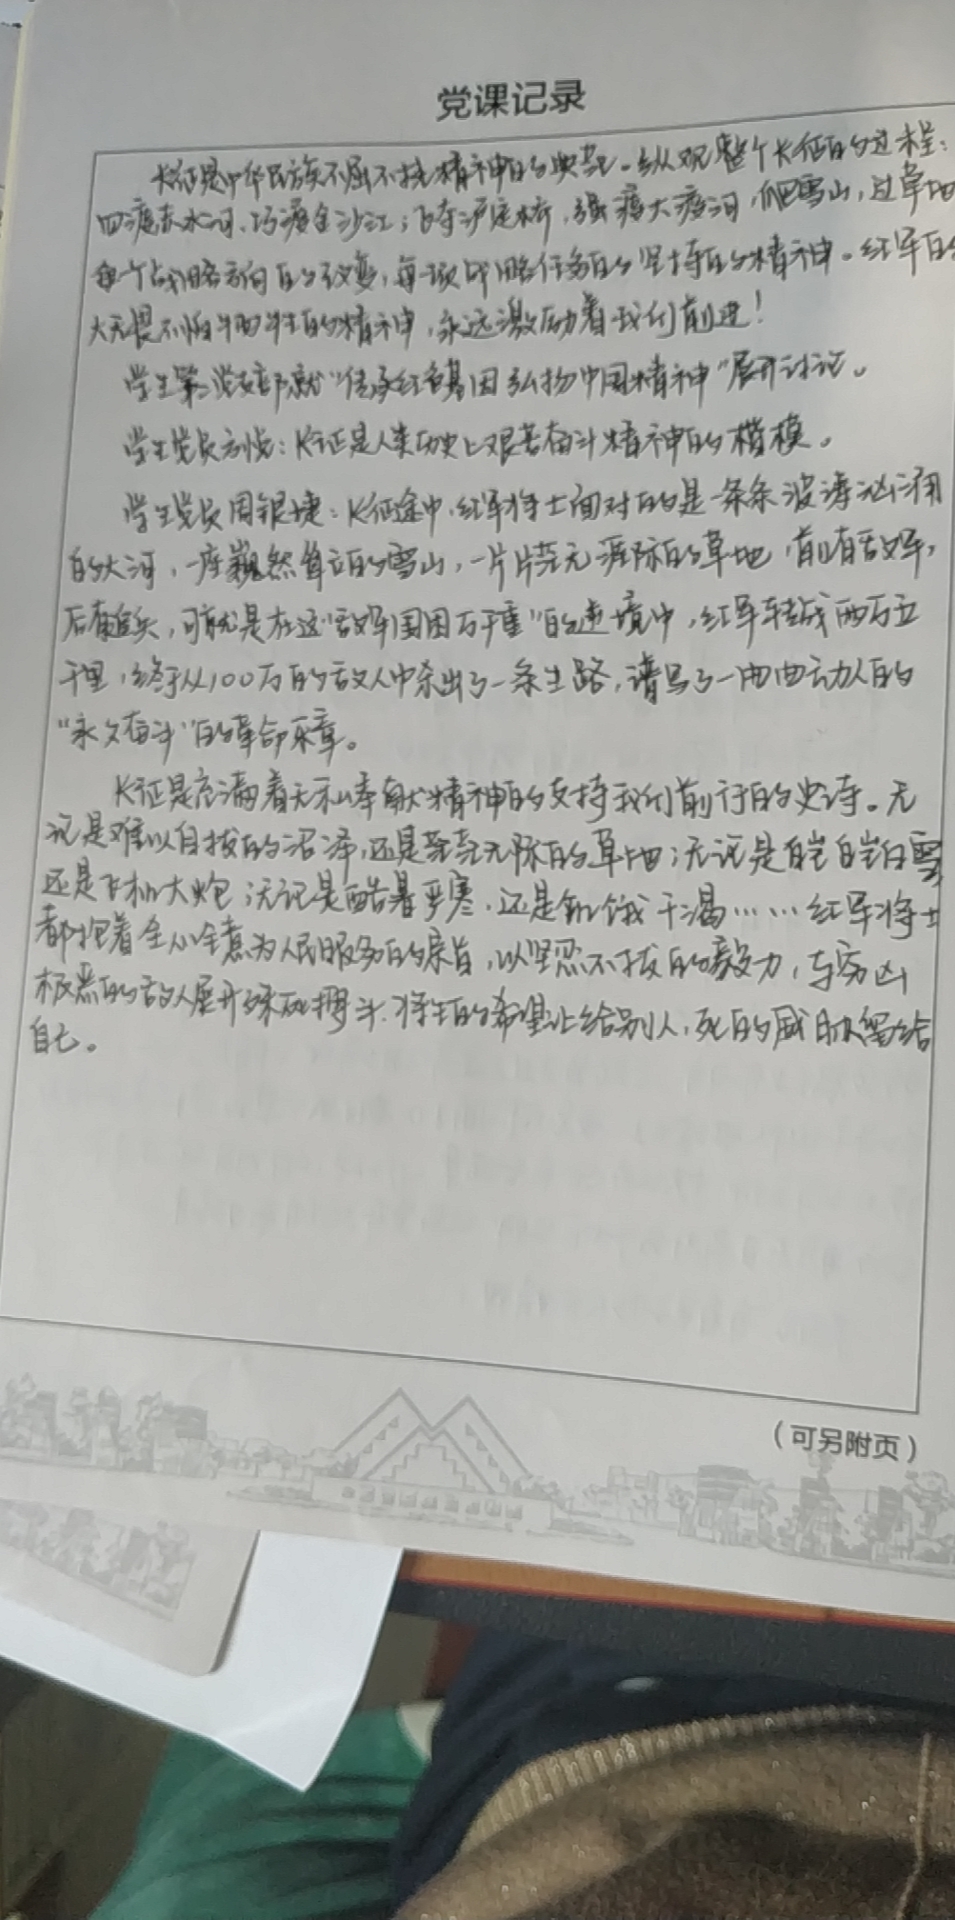 党课记录
长征是中华民族不屈不挠精神的典范。纵观整个长征的过程:
四渡赤水河、巧渡金沙江;飞夺泸定桥,强渡大渡河,爬雪山,过草地
每个战略方向的改变,每项战略任务的坚持的精神。红军的
大无畏不怕牺牲的精神,永远激励着我们前进!
学生第二党支部就“传承红色基因弘扬中国精神”展开讨论。
学生党员方悦:长征是人类历史上艰苦奋斗精神的楷模。
学生党员周银捷:长征途中,红军将士面对的是一条条波涛汹涌
的大河,一座巍然耸立的雪山,一片片荒无涯际的草地,前有敌军,
后有追兵,可就是在这“敌军围困万千重”的逆境中,红军转战两万五
千里,终于从100万的敌人中杀出了一条生路,谱写了一曲曲动人的
“永久奋斗”的革命乐章。
长征是充满着无私奉献精神的支持我们前行的史诗。无
论是难以自拔的沼泽,还是荒无际的草地;无论是皑皑白雪
还是飞机大炮;无论是酷暑严寒,还是饥饿干渴……红军将士
都抱着全心全意为人民服务的宗旨,以坚忍不拔的毅力,与穷凶
极恶的敌人展开殊死搏斗,将生的希望让给别人,死的威胁留给
自己。
(可另附页)